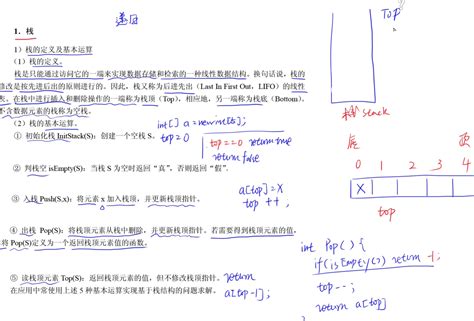 递归
1. 栈
1）栈的定义及基本运算
（1）栈的定义。
栈是只能通过访问它的一端来实现数据存储和检索的一种线性数据结构。换句话说，栈的
修改是按先进后出的原则进行的。因此，栈又称为后进先出（Last In First Out，LIFO）的线性
表。在栈中进行插入和删除操作的一端称为栈顶（Top），相应地，另一端称为栈底（Bottom）。
不含数据元素的栈称为空栈。
（2）栈的基本运算。
int[] a = new int[5];
① 初始化栈 InitStack(S)：创建一个空栈 S。
top = 0
top == 0 return true
return false
② 判栈空 isEmpty(S)：当栈 S 为空时返回“真”，否则返回“假”。
③ 入栈 Push(S,x)：将元素 x 加入栈顶，并更新栈顶指针。
a[top] = X
top ++,
④ 出栈 Pop(S)：将栈顶元素从栈中删除，并更新栈顶指针。若需要得到栈顶元素的值，
将 Pop(S)定义为一个返回栈顶元素值的函数。
⑤ 读栈顶元素 Top(S)：返回栈顶元素的值，但不修改栈顶指针。
在应用中常使用上述 5 种基本运算实现基于栈结构的问题求解。
return
a[top-1];
Top
栈 Stack
底 顶
0 1 2 3 4
X
top
int Pop() {
if(isEmpty()) return -1;
top--;
return a[top]